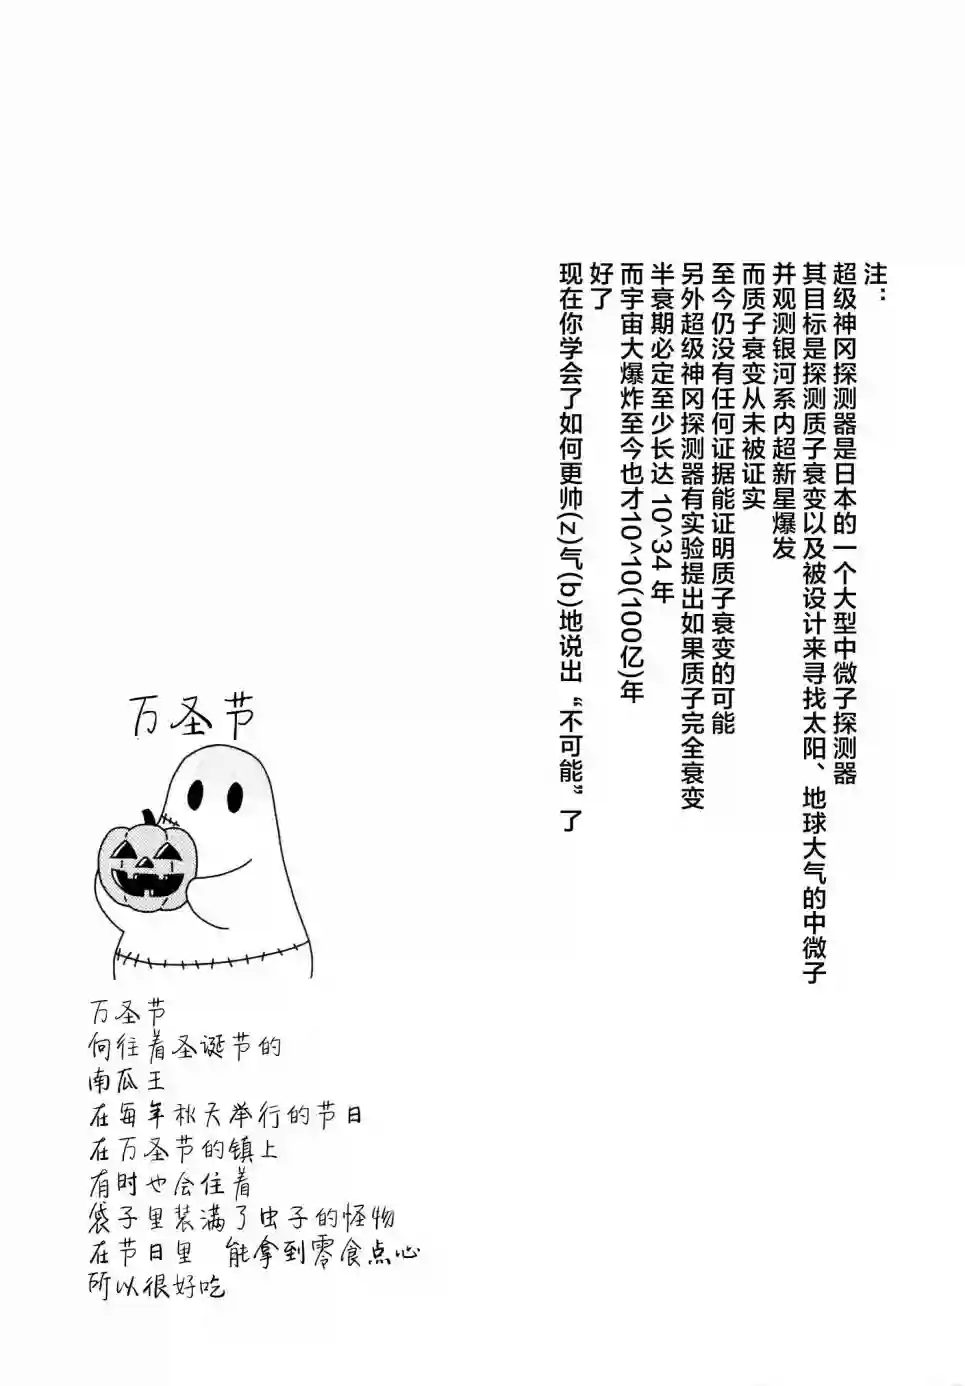 注：
超级神冈探测器是日本的一个大型中微子探测器
其目标是探测质子衰变以及被设计来寻找太阳、地球大气的中微子
并观测银河系内超新星爆发
而质子衰变从未被证实
至今仍没有任何证据能证明质子衰变的可能
另外超级神冈探测器有实验提出如果质子完全衰变
半衰期必定至少长达 10^34 年
而宇宙大爆炸至今也才10^10(100亿)年
好了
现在你学会了如何更帅(z)气(b)地说出“不可能”了
万圣节
万圣节
向往着圣诞节的
南瓜王
在每年秋天举行的节日
在万圣节的镇上
有时也会住着
袋子里装满了虫子的怪物
在节日里 能拿到零食点心
所以很好吃